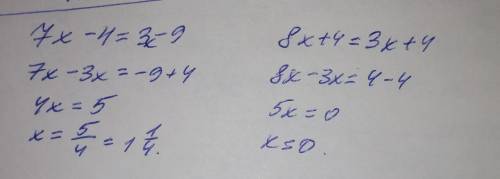 7x - 4 = 3x - 9
7x - 3x = -9 + 4
4x = 5
x = 5/4 = 1 1/4.
8x + 4 = 3x + 4
8x - 3x = 4 - 4
5x = 0
x = 0.